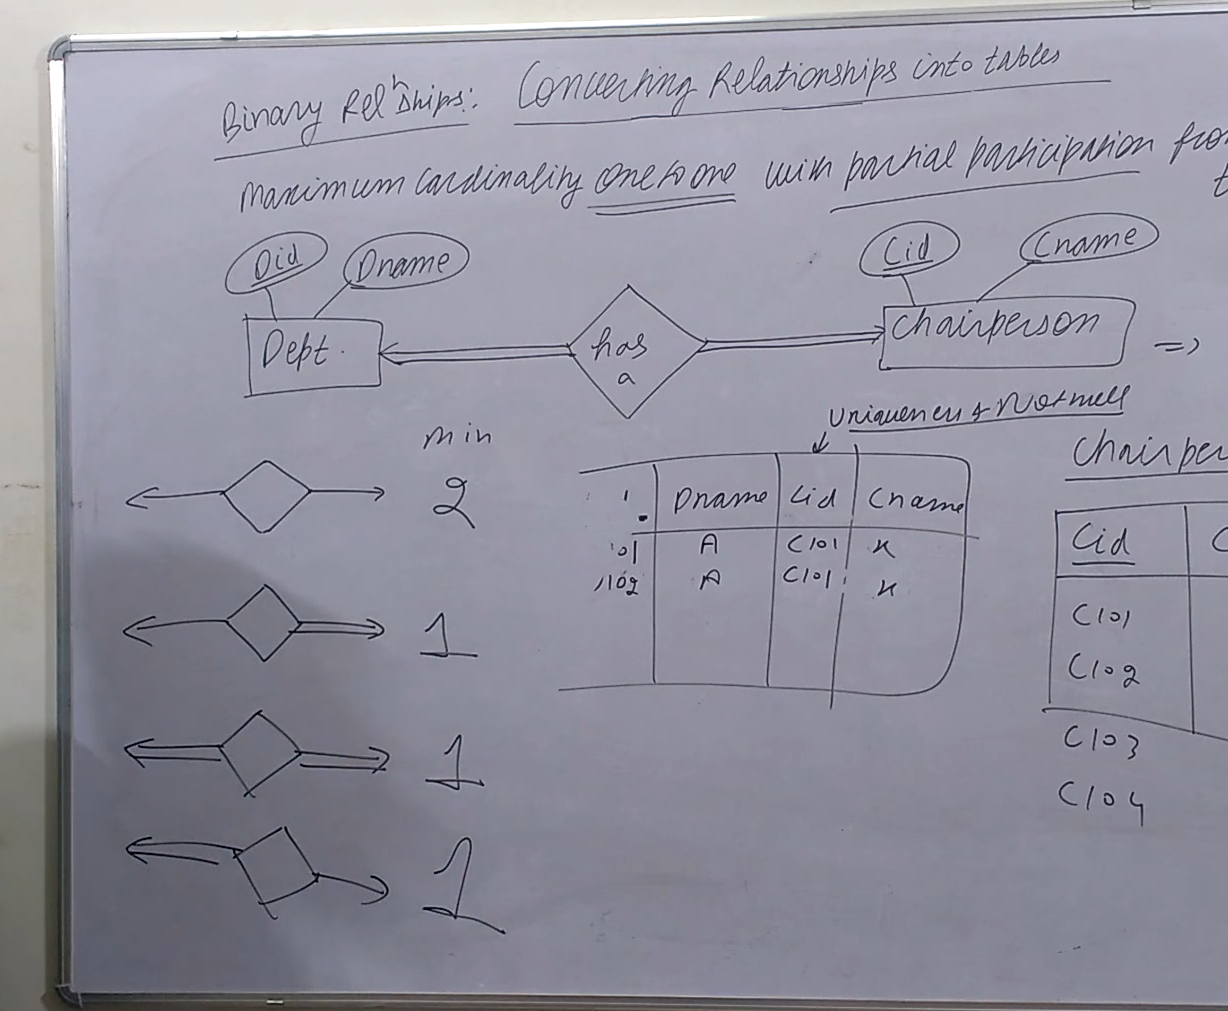 Binary Rel'ships: Converting Relationships into tables
Maximum cardinality one to one with partial participation from
Did Dname Cid Cname
Dept. has a Chairperson =>
Uniqueness & Not null
min
2
1
1
1
Dname Cid Cname
101 A C101 x
102 A C101 x
Chairper
Cid C
C101
C102
C103
C104